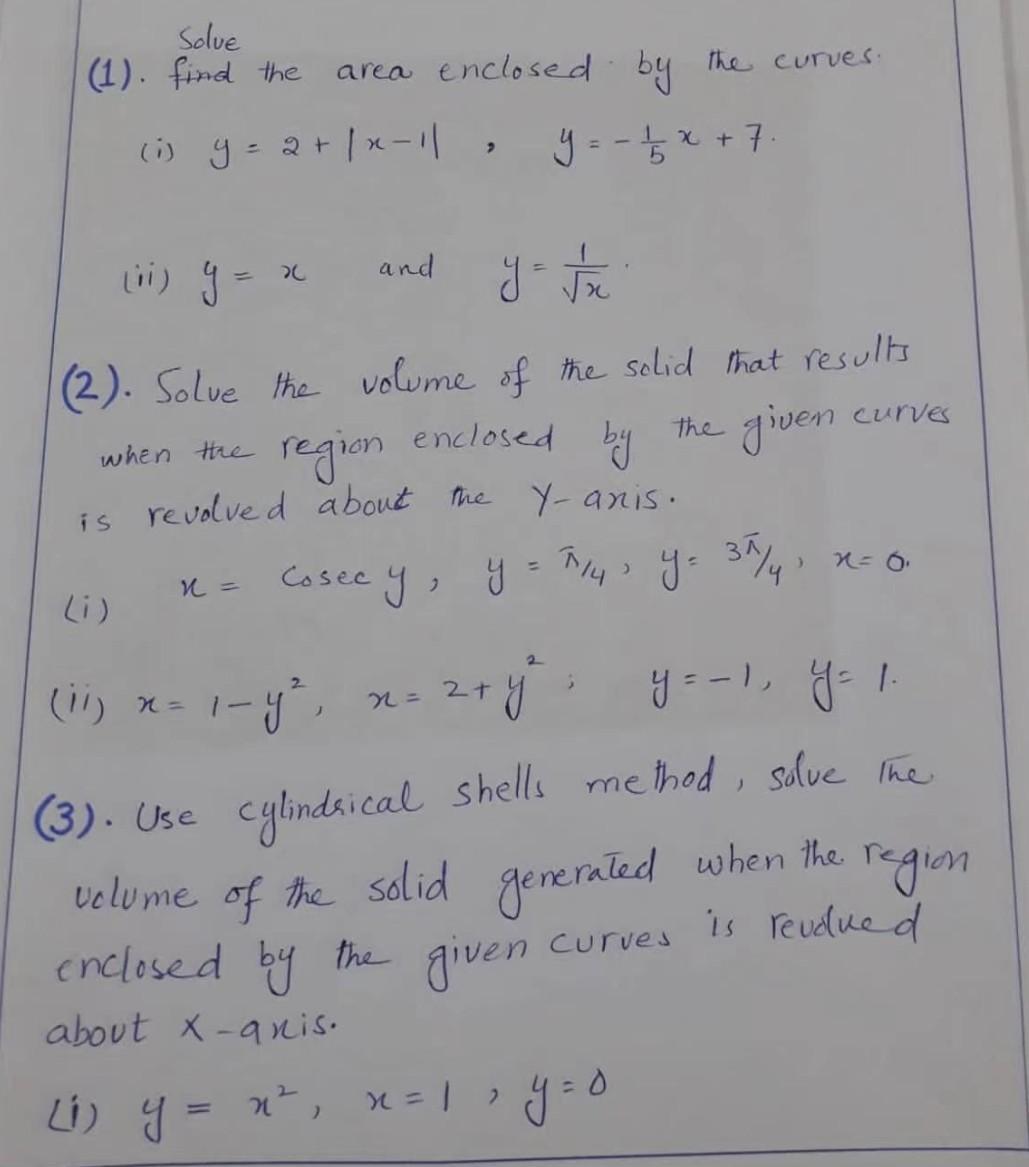 Solve
(1). find the area enclosed by the curves.
(i) y = 2 + |x-1| , y = -1/5 x + 7.
(ii) y = x and y = 1/√x .
(2). Solve the volume of the solid that results
when the region enclosed by the given curves
is revolved about the Y-axis.
(i) x = Cosec y, y = π/4, y = 3π/4, x = 0.
(ii) x = 1-y², x = 2+y² ; y = -1, y = 1.
(3). Use cylindrical shells method, solve the
volume of the solid generated when the region
enclosed by the given curves is revolved
about X-axis.
(i) y = x², x = 1, y = 0